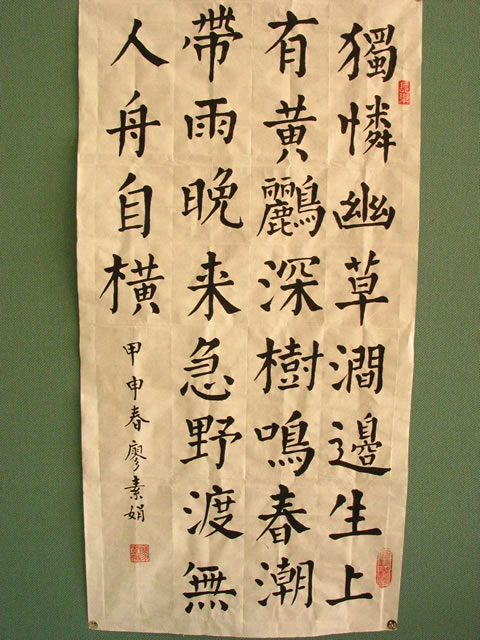 獨憐幽草澗邊生上
有黃鸝深樹鳴春潮
帶雨晚来急野渡無
人舟自橫
甲申春廖素娟